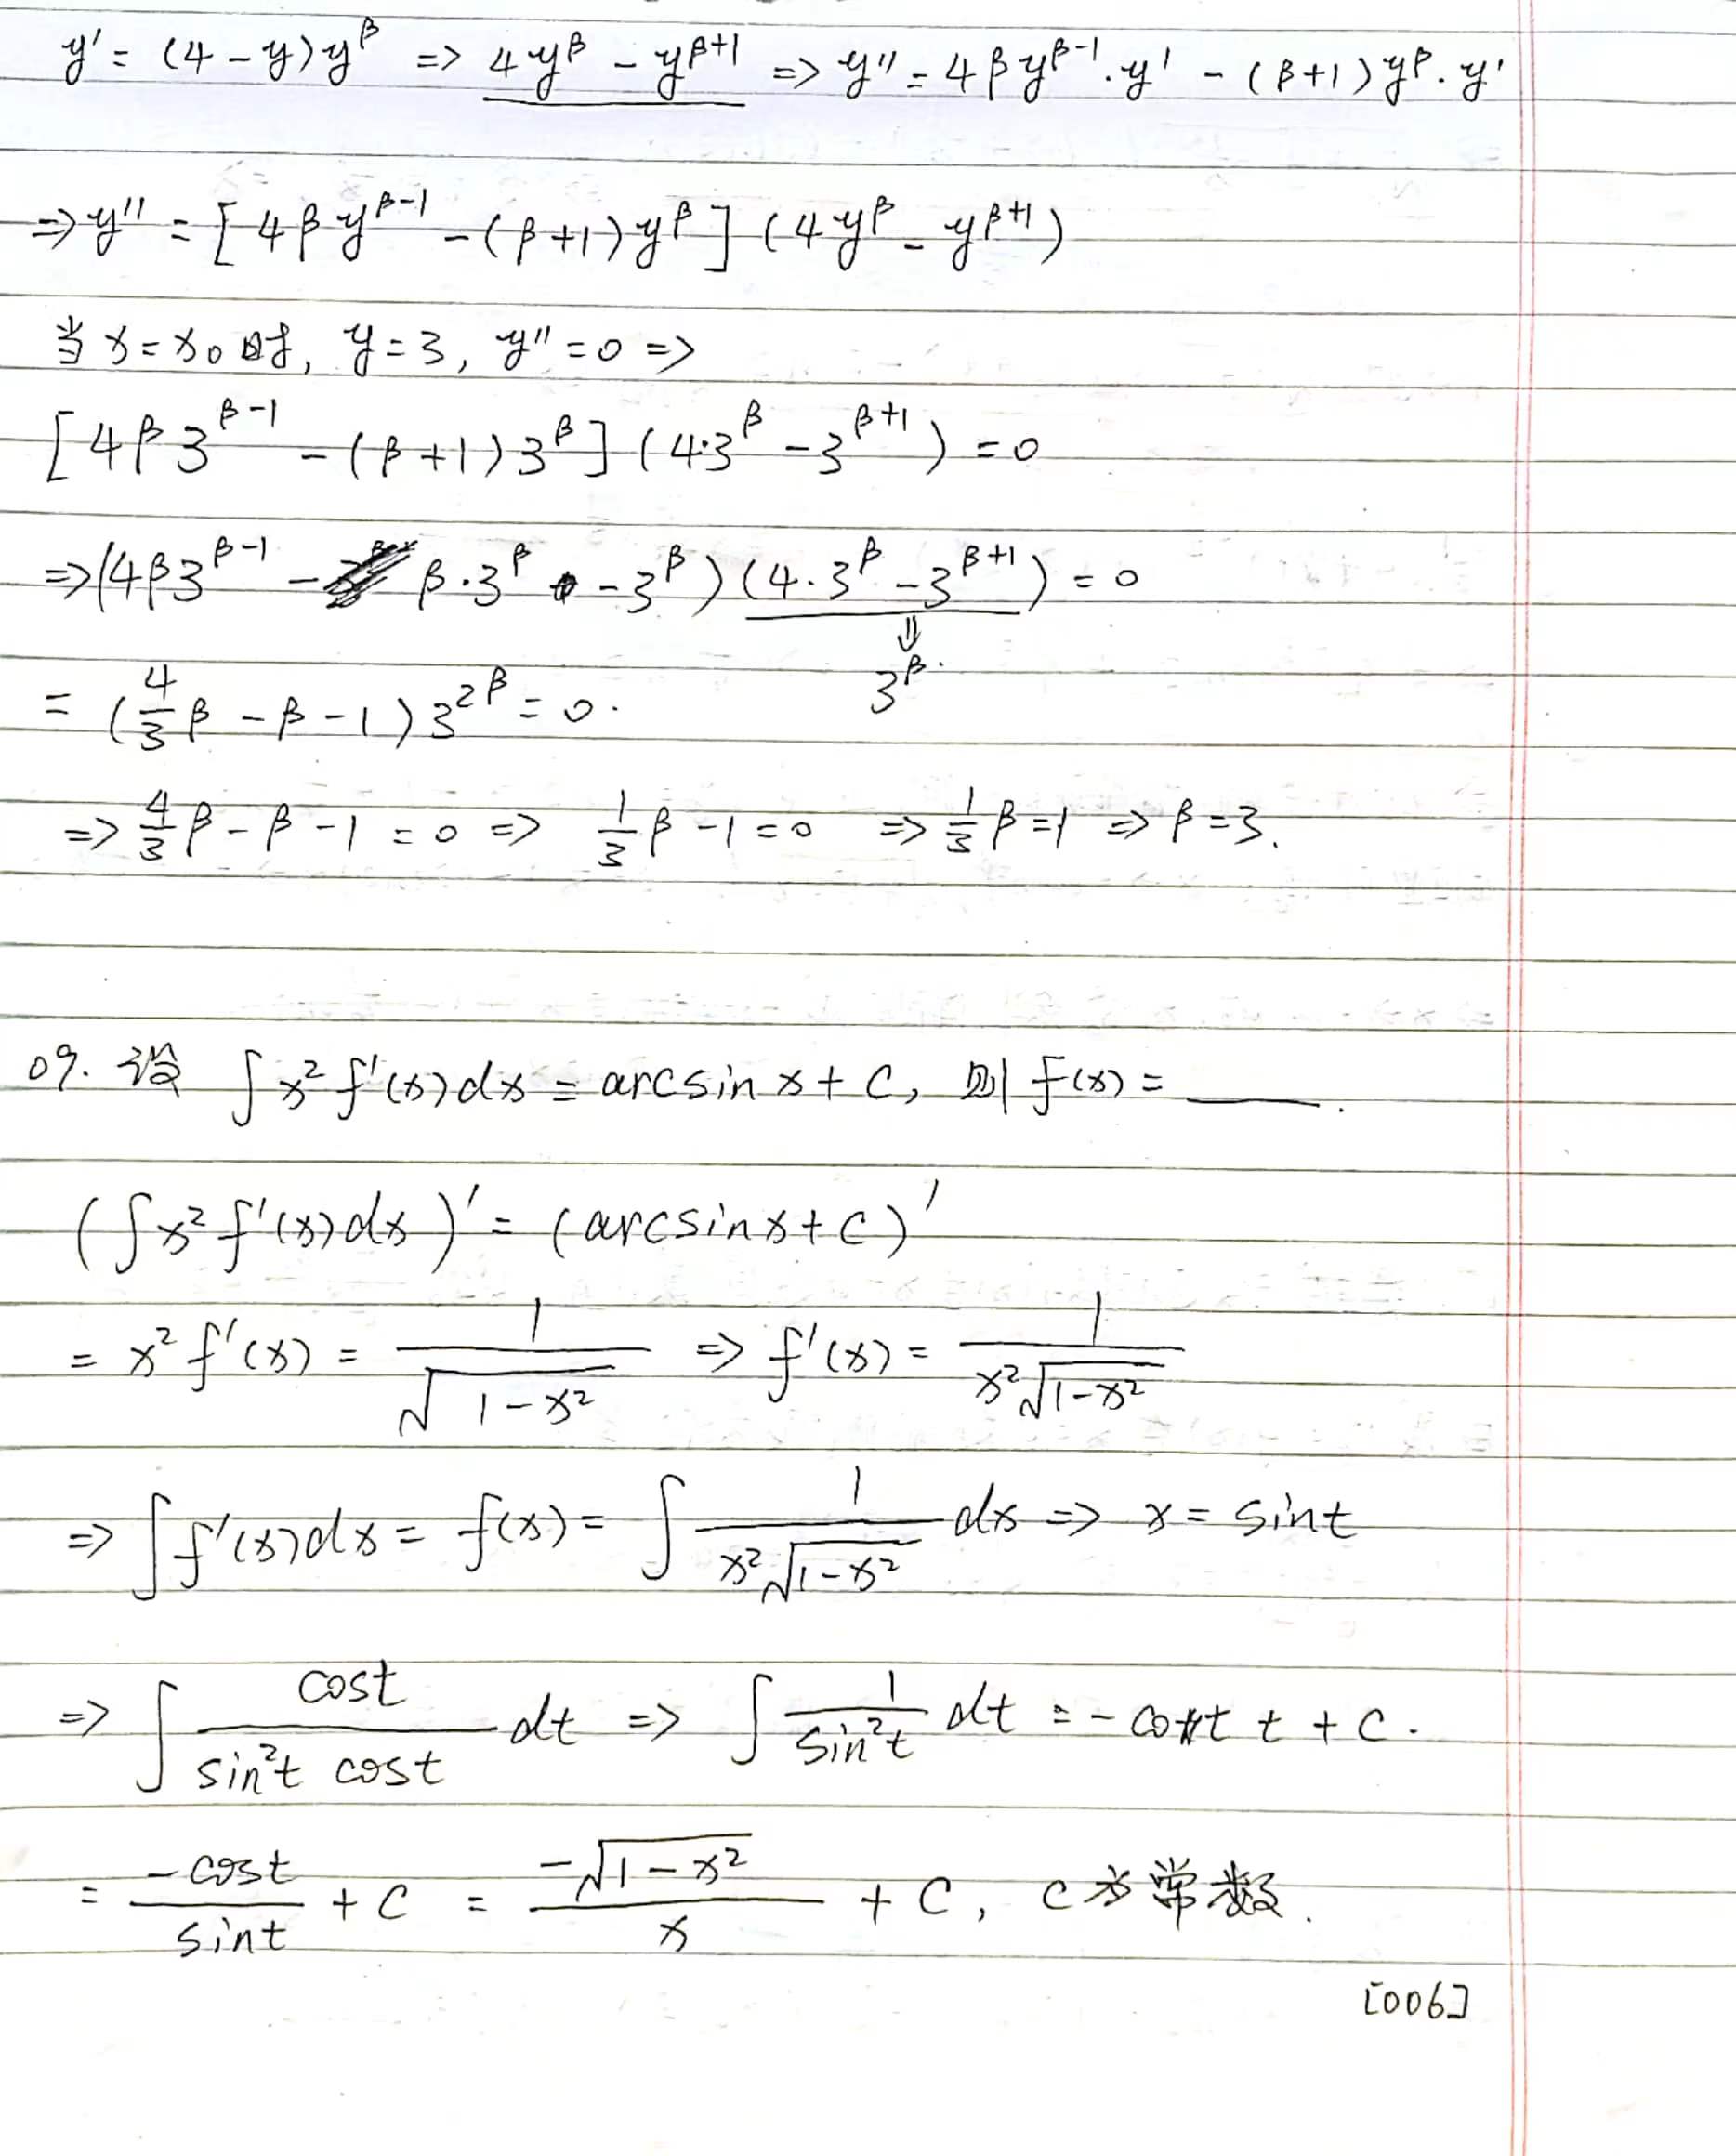 y' = (4-y)y^β => 4y^β - y^{β+1} => y'' = 4βy^{β-1}·y' - (β+1)y^β·y'
=> y'' = [4βy^{β-1} - (β+1)y^β](4y^β - y^{β+1})
当x=x₀时, y=3, y''=0 =>
[4β3^{β-1} - (β+1)3^β](4·3^β - 3^{β+1}) = 0
=> (4β3^{β-1} - β·3^β - 3^β)(4·3^β - 3^{β+1}) = 0
⇓
3^β.
= (4/3 β - β - 1)3^{2β} = 0.
=> 4/3 β - β - 1 = 0 => 1/3 β - 1 = 0 => 1/3 β = 1 => β = 3.
09. 设 ∫x²f'(x)dx = arcsinx + C, 则f(x) = ____.
(∫x²f'(x)dx)' = (arcsinx+C)'
= x²f'(x) = 1/√(1-x²) => f'(x) = 1/(x²√(1-x²))
=> ∫f'(x)dx = f(x) = ∫ 1/(x²√(1-x²)) dx => x = sint
=> ∫ cost/(sin²t cost) dt => ∫ 1/sin²t dt = -cot t + C.
= -cost/sint + C = -√(1-x²)/x + C, C为常数.
[006]